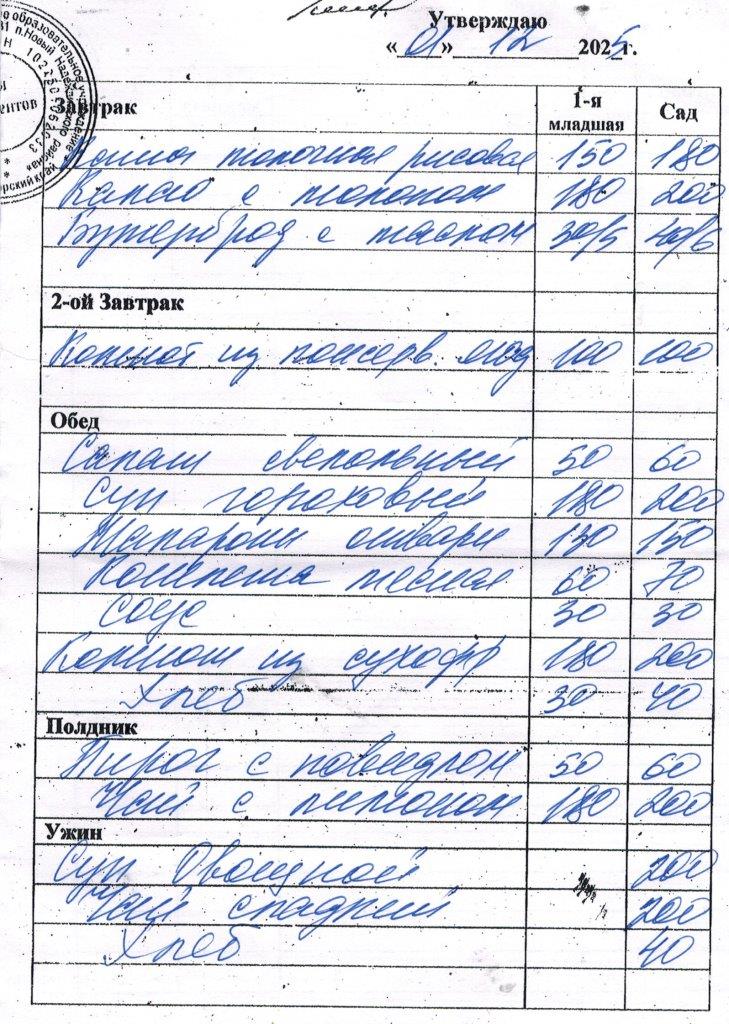 Утверждаю
«01» 12 2025г.
Завтрак 1-я младшая Сад
Каша молочная рисовая 150 180
Какао с молоком 180 200
Бутерброд с маслом 30/5 40/6
2-ой Завтрак
Компот из консерв. ягод 100 100
Обед
Салат свекольный 50 60
Суп гороховый 180 200
Макароны отварн 130 150
Котлета мясная 60 70
Соус 30 30
Компот из сухофр 180 200
Хлеб 30 40
Полдник
Пирог с повидлом 50 60
Чай с лимоном 180 200
Ужин
Суп Овощной 200
Чай сладкий 200
Хлеб 40